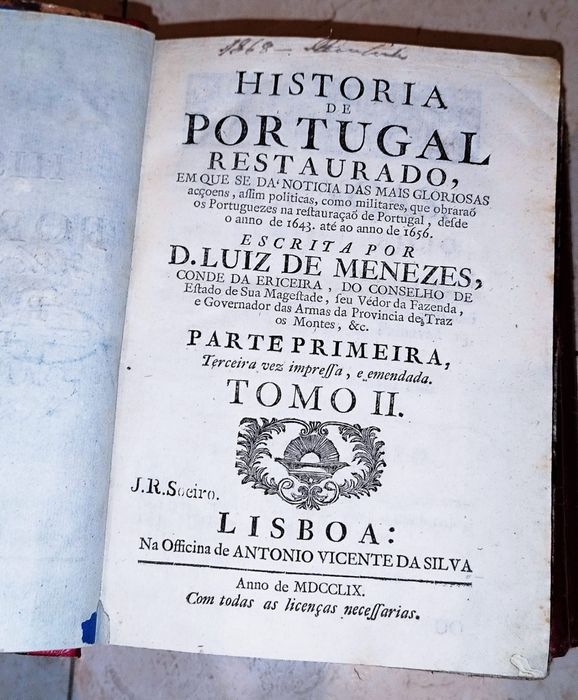 1868
HISTORIA
DE
PORTUGAL
RESTAURADO,
EM QUE SE DA' NOTICIA DAS MAIS GLORIOSAS
acçoens, aſſim politicas, como militares, que obraraõ
os Portuguezes na reſtauraçaõ de Portugal, deſde
o anno de 1643. até ao anno de 1656.
ESCRITA POR
D. LUIZ DE MENEZES,
CONDE DA ERICEIRA, DO CONSELHO DE
Eſtado de Sua Mageſtade, ſeu Védor da Fazenda,
e Governador das Armas da Provincia de Traz
os Montes, &c.
PARTE PRIMEIRA,
Terceira vez impreſſa, e emendada.
TOMO II.
J.R.Soeiro.
LISBOA:
Na Officina de ANTONIO VICENTE DA SILVA
Anno de MDCCLIX.
Com todas as licenças neceſſarias.